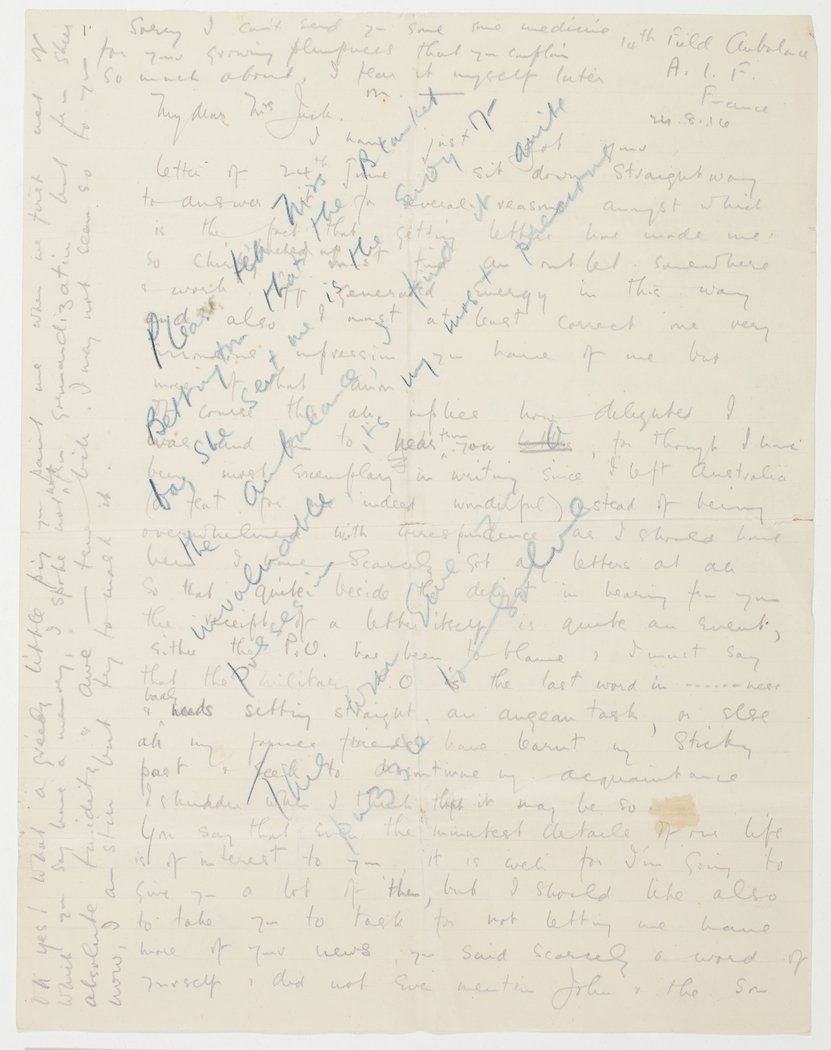 Sorry I can't send you some some medicine
for your growing plumpness that you complain
so much about, I fear it myself later
10th Field Ambulance
A. I. F.
France
24.8.16
My dear Mrs Jack.
I have just got your
letter of 24th June & sit down straightway
to answer it for several reasons amongst which
is the fact that getting letters has made me
so find an outlet somewhere
& work off generated energy in this way
and also I must at least correct one very
impression you have of me but
more of what anon.
Of course this all implies how delighted I
was and am to hear from you, for though I have
been most exemplary in writing since I left Australia
(a feat for me indeed wonderful) instead of being
overwhelmed with correspondence as I should have
been I have scarcely got any letters at all
so that quite beside the delight in hearing from you
the receipt of a letter itself is quite an event,
either the P.O. has been to blame & I must say
that the military P.O is the last word in ------ness
& badly needs setting straight, an augean task, or else
all my former friends have learnt my sticky
past & seek to discontinue my acquaintance
I shudder when I think that it may be so
You say that even the minutest details of our life
is of interest to you, it is well for I'm going to
give you a lot of them, but I should like also
to take you to task for not letting me have
more of your news, you said scarcely a word of
yourself & did not even mention John & the Son
Please tell Miss
Bettington that the Blanket
bag she sent me is the envy of
the ambulance I find it quite
invaluable its my most precious
possession
This war
puzzle
to solve
Oh yes! What a greedy little pig you paint me when we first met or
which you say have a memory, I spoke not from Gormandization but from sheer
absolute timidity & awe — true bill. I may not seem so to you
now, I am still but try to mask it.